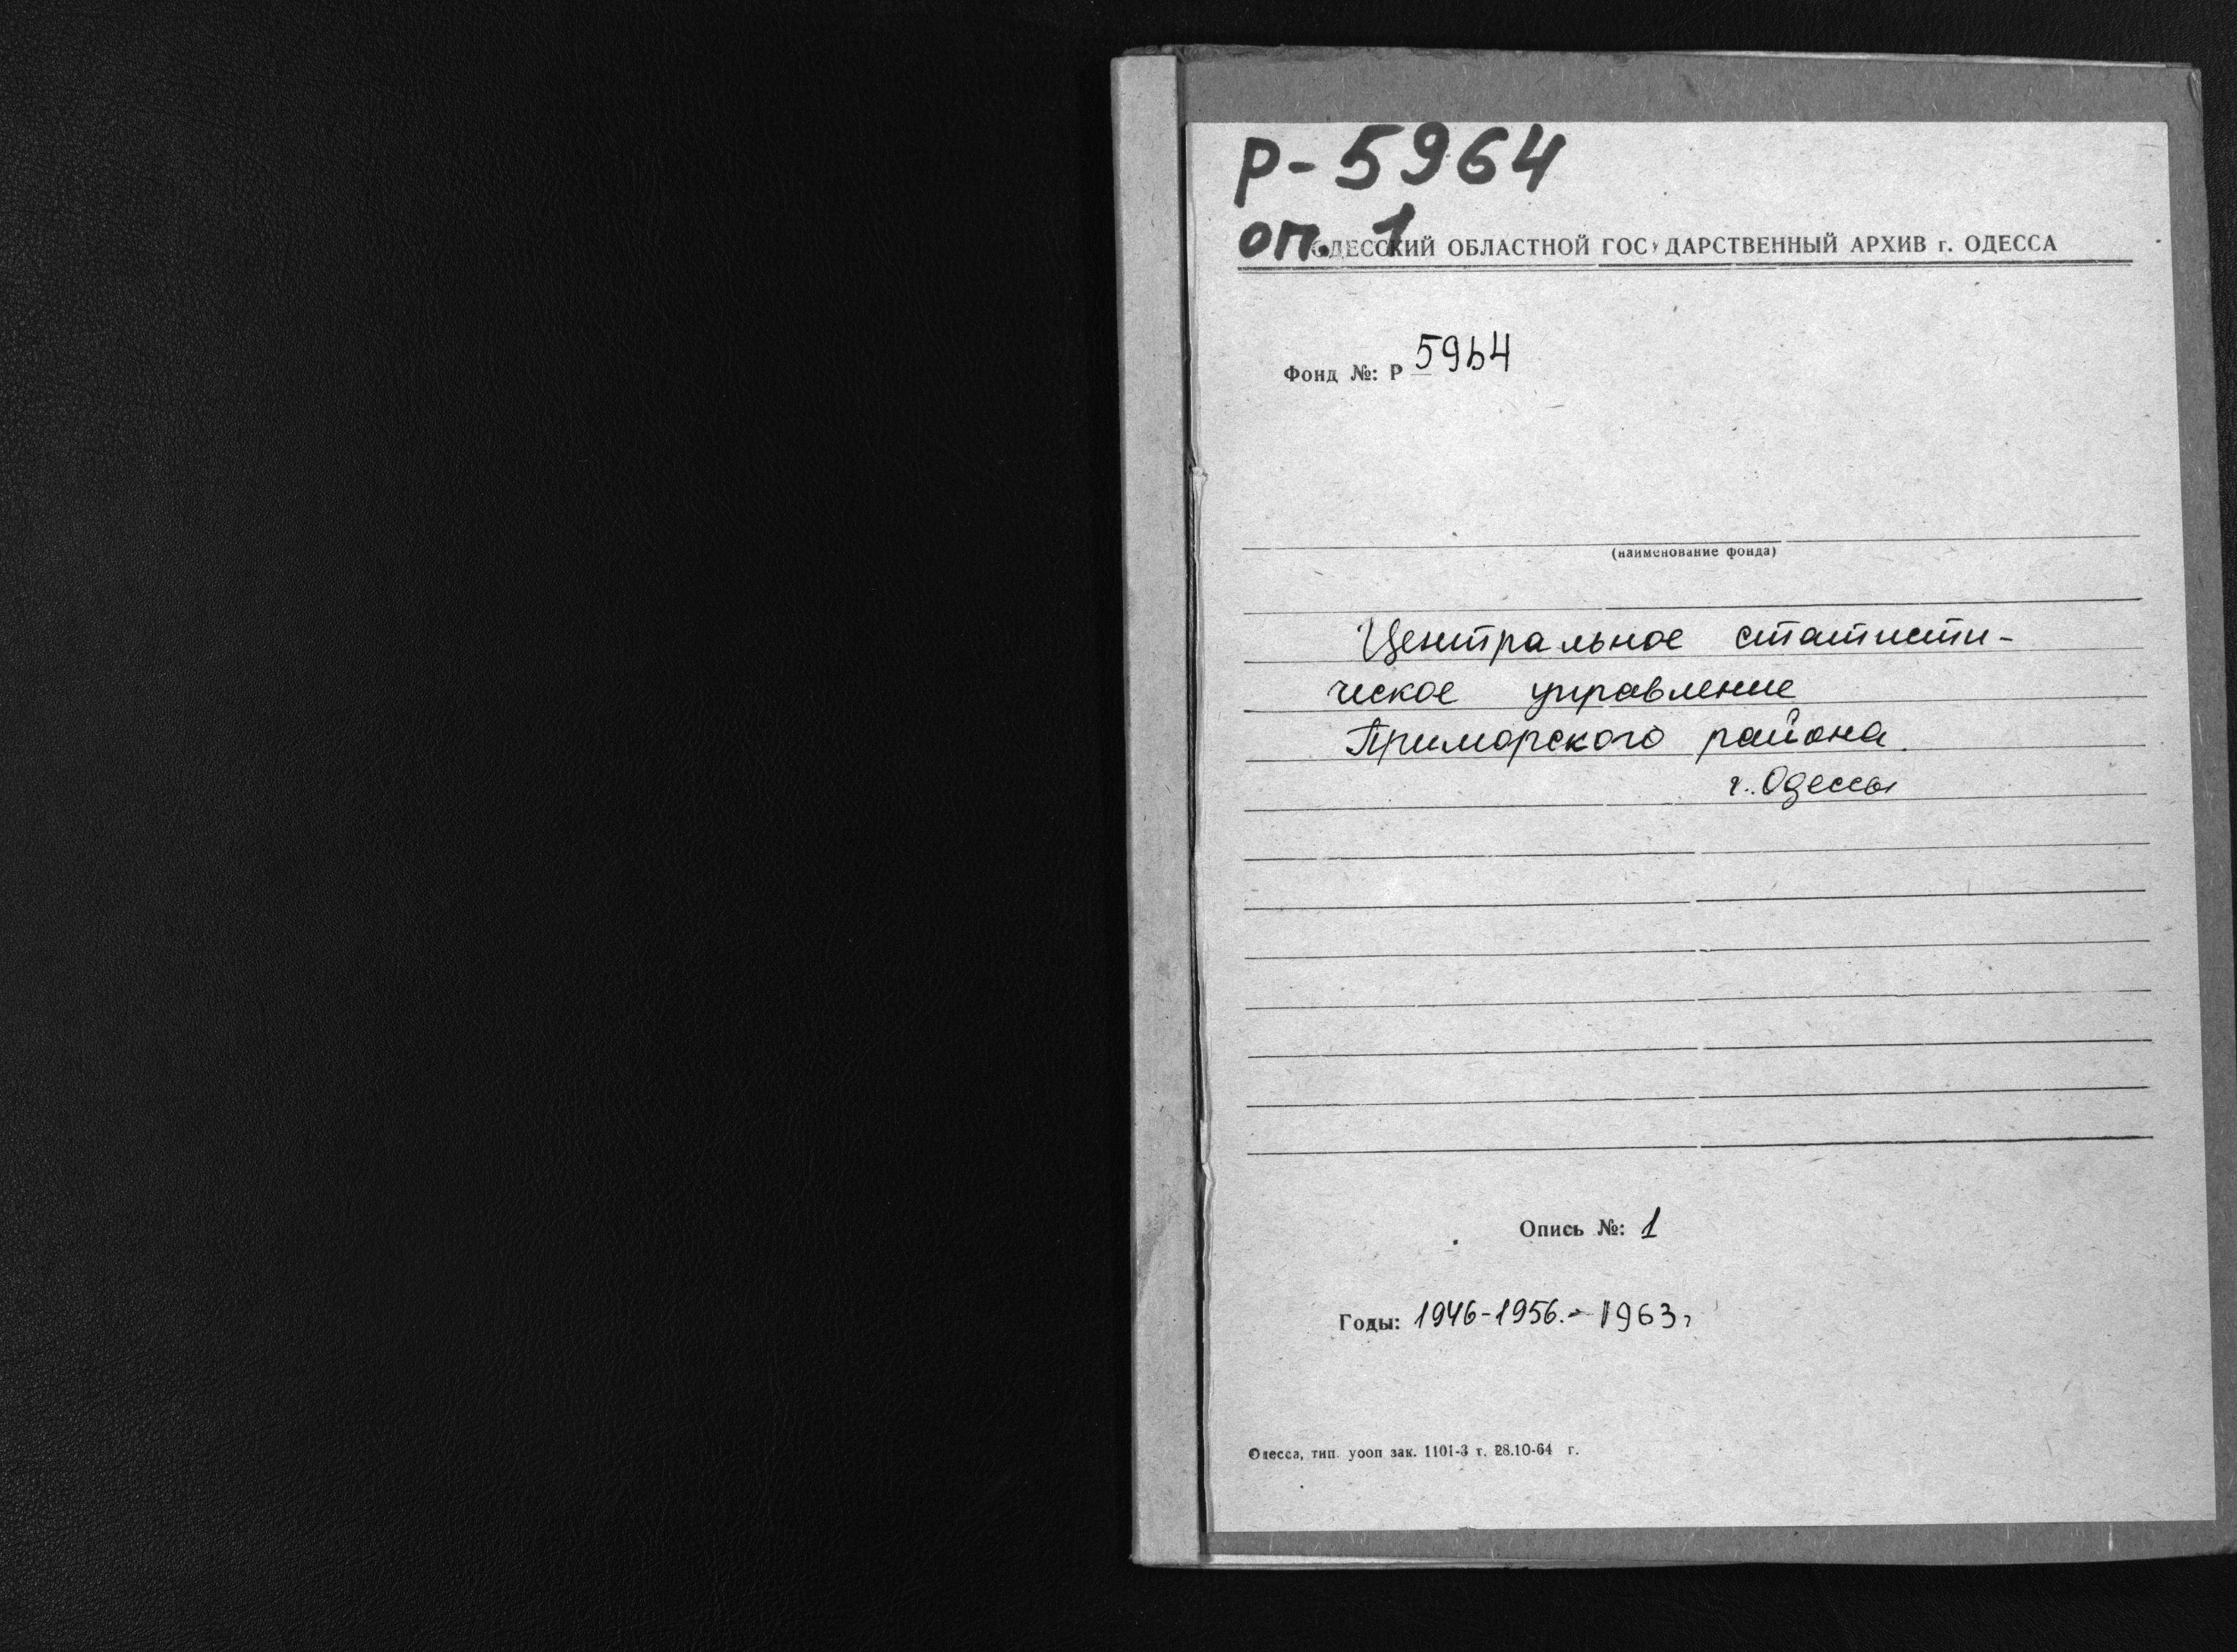 Р-5964
оп. 1
ОДЕССКИЙ ОБЛАСТНОЙ ГОСУДАРСТВЕННЫЙ АРХИВ г. ОДЕССА
Фонд №: Р 5964
(наименование фонда)
Центральное статисти-
ческое управление
Приморского района
г. Одессы
Опись №: 1
Годы: 1946-1956.-1963г
Одесса, тип. уооп зак. 1101-3 т. 28.10-64 г.